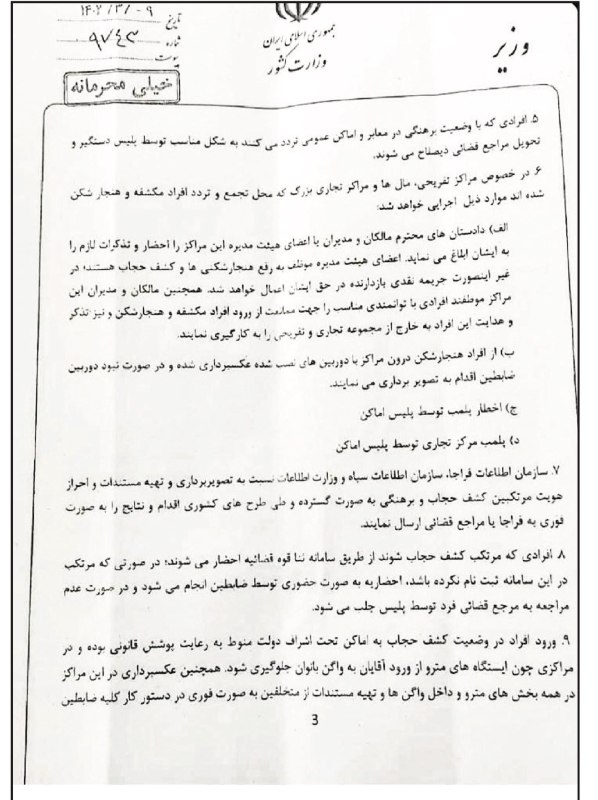 تاریخ ۱۴۰۲/۳/۰۹
شماره ۹۷۴۳
پیوست
خیلی محرمانه
جمهوری اسلامی ایران
وزارت کشور
وزیر
۵. افرادی که با وضعیت برهنگی در معابر و اماکن عمومی تردد می کنند به شکل مناسب توسط پلیس دستگیر و
تحویل مراجع قضائی ذیصلاح می شوند.
۶. در خصوص مراکز تفریحی، مال ها و مراکز تجاری بزرگ که محل تجمع و تردد افراد مکشفه و هنجار شکن
شده اند موارد ذیل اجرایی خواهد شد:
الف) دادستان های محترم مالکان و مدیران یا اعضای هیئت مدیره این مراکز را احضار و تذکرات لازم را
به ایشان ابلاغ می نماید. اعضای هیئت مدیره موظف به رفع هنجارشکنی ها و کشف حجاب هستند؛ در
غیر اینصورت جریمه نقدی بازدارنده در حق ایشان اعمال خواهد شد. همچنین مالکان و مدیران این
مراکز موظفند افرادی با توانمندی مناسب را جهت ممانعت از ورود افراد مکشفه و هنجارشکن و نیز تذکر
و هدایت این افراد به خارج از مجموعه تجاری و تفریحی را به کارگیری نمایند.
ب) از افراد هنجارشکن درون مراکز با دوربین های نصب شده عکسبرداری شده و در صورت نبود دوربین
ضابطین اقدام به تصویر برداری می نمایند.
ج) اخطار پلمب توسط پلیس اماکن
د) پلمب مرکز تجاری توسط پلیس اماکن
۷. سازمان اطلاعات فراجا، سازمان اطلاعات سپاه و وزارت اطلاعات نسبت به تصویربرداری و تهیه مستندات و احراز
هویت مرتکبین کشف حجاب و برهنگی به صورت گسترده و طی طرح های کشوری اقدام و نتایج را به صورت
فوری به فراجا یا مراجع قضائی ارسال نمایند.
۸. افرادی که مرتکب کشف حجاب شوند از طریق سامانه ثنا قوه قضائیه احضار می شوند؛ در صورتی که مرتکب
در این سامانه ثبت نام نکرده باشد، احضاریه به صورت حضوری توسط ضابطین انجام می شود و در صورت عدم
مراجعه به مرجع قضائی فرد توسط پلیس جلب می شود.
۹. ورود افراد در وضعیت کشف حجاب به اماکن تحت اشراف دولت منوط به رعایت پوشش قانونی بوده و در
مراکزی چون ایستگاه های مترو از ورود آقایان به واگن بانوان جلوگیری شود. همچنین عکسبرداری در این مراکز
در همه بخش های مترو و داخل واگن ها و تهیه مستندات از متخلفین به صورت فوری در دستور کار کلیه ضابطین
3